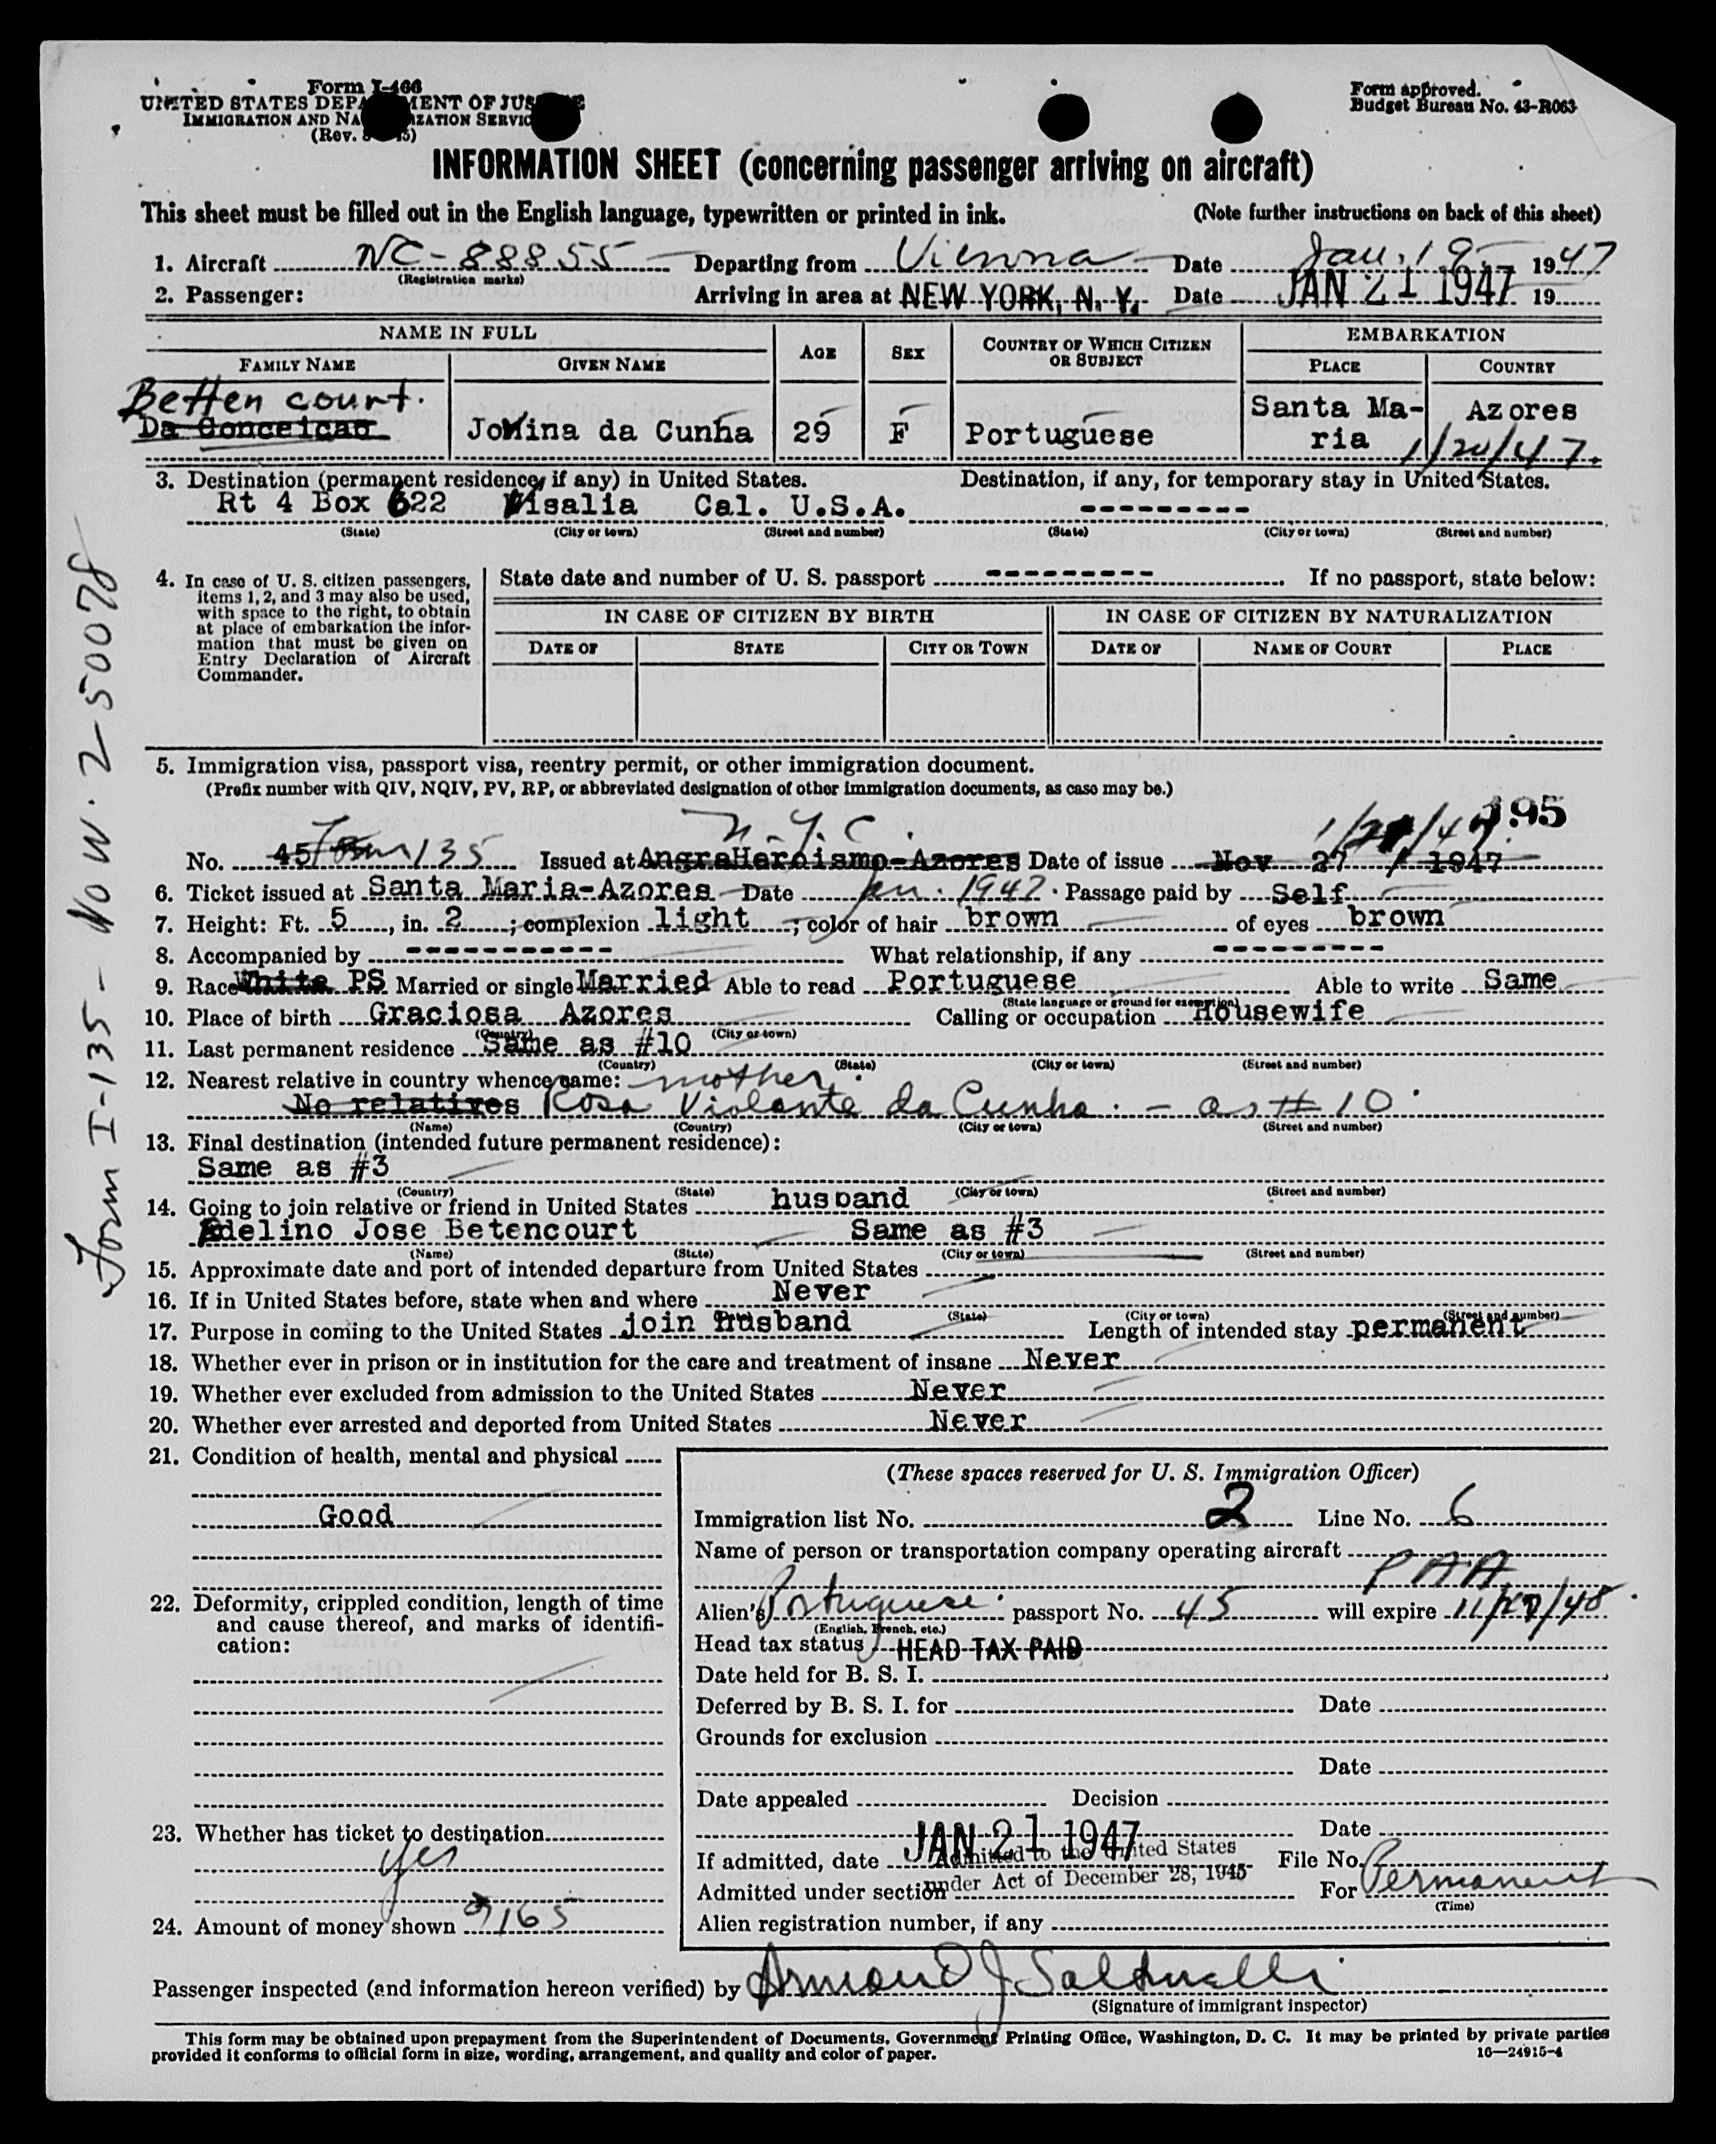 Form I-466
UNITED STATES DEPARTMENT OF JUSTICE
IMMIGRATION AND NATURALIZATION SERVICE
(Rev.
Form approved.
Budget Bureau No. 43-R063
INFORMATION SHEET (concerning passenger arriving on aircraft)
This sheet must be filled out in the English language, typewritten or printed in ink. (Note further instructions on back of this sheet)
1. Aircraft NC-88855 Departing from Vienna Date Jan. 19 1947
(Registration marks)
2. Passenger: Arriving in area at NEW YORK, N. Y. Date JAN 21 1947 19
NAME IN FULL AGE SEX COUNTRY OF WHICH CITIZEN OR SUBJECT EMBARKATION
FAMILY NAME GIVEN NAME PLACE COUNTRY
Betten court.
Da Conceicao Jovina da Cunha 29 F Portuguese Santa Maria Azores
1/20/47.
3. Destination (permanent residence, if any) in United States. Destination, if any, for temporary stay in United States.
Rt 4 Box 622 Visalia Cal. U.S.A. ---------
(State) (City or town) (Street and number) (State) (City or town) (Street and number)
4. In case of U. S. citizen passengers, items 1, 2, and 3 may also be used, with space to the right, to obtain at place of embarkation the information that must be given on Entry Declaration of Aircraft Commander.
State date and number of U. S. passport ---------- If no passport, state below:
IN CASE OF CITIZEN BY BIRTH IN CASE OF CITIZEN BY NATURALIZATION
DATE OF STATE CITY OR TOWN DATE OF NAME OF COURT PLACE
5. Immigration visa, passport visa, reentry permit, or other immigration document.
(Prefix number with QIV, NQIV, PV, RP, or abbreviated designation of other immigration documents, as case may be.)
N.Y.C. 195
No. 45 Form 135 Issued at AngraHeroismo-Azores Date of issue Nov 27 1947
6. Ticket issued at Santa Maria-Azores Date Jan. 1947. Passage paid by Self
7. Height: Ft. 5, in. 2; complexion light; color of hair brown of eyes brown
8. Accompanied by ------------ What relationship, if any ----------
9. Race White PS Married or single Married Able to read Portuguese Able to write Same
(State language or ground for exemption)
10. Place of birth Graciosa Azores Calling or occupation Housewife
(Country) (City or town)
11. Last permanent residence Same as #10
(Country) (State) (City or town) (Street and number)
12. Nearest relative in country whence came: mother.
No relatives Rosa Violante da Cunha. - as #10.
(Name) (Country) (City or town) (Street and number)
13. Final destination (intended future permanent residence):
Same as #3
(Country) (State) (City or town) (Street and number)
14. Going to join relative or friend in United States husband
Adelino Jose Betencourt Same as #3
(Name) (State) (City or town) (Street and number)
15. Approximate date and port of intended departure from United States
16. If in United States before, state when and where Never
(State) (City or town) (Street and number)
17. Purpose in coming to the United States join husband Length of intended stay permanent
18. Whether ever in prison or in institution for the care and treatment of insane Never
19. Whether ever excluded from admission to the United States Never
20. Whether ever arrested and deported from United States Never
21. Condition of health, mental and physical
Good
22. Deformity, crippled condition, length of time and cause thereof, and marks of identification:
23. Whether has ticket to destination
yes
24. Amount of money shown 165
(These spaces reserved for U. S. Immigration Officer)
Immigration list No. 2 Line No. 6
Name of person or transportation company operating aircraft
PAA
Alien's Portuguese passport No. 45 will expire 11/27/48.
(English, French, etc.)
Head tax status HEAD TAX PAID
Date held for B. S. I.
Deferred by B. S. I. for Date
Grounds for exclusion
Date
Date appealed Decision
Date
If admitted, date JAN 21 1947 File No.
Admitted to the United States
under Act of December 28, 1945
Admitted under section For Permanent
(Time)
Alien registration number, if any
Passenger inspected (and information hereon verified) by
(Signature of immigrant inspector)
This form may be obtained upon prepayment from the Superintendent of Documents, Government Printing Office, Washington, D. C. It may be printed by private parties
provided it conforms to official form in size, wording, arrangement, and quality and color of paper. 16—24915-4
Form I-135- No W. 2-50078